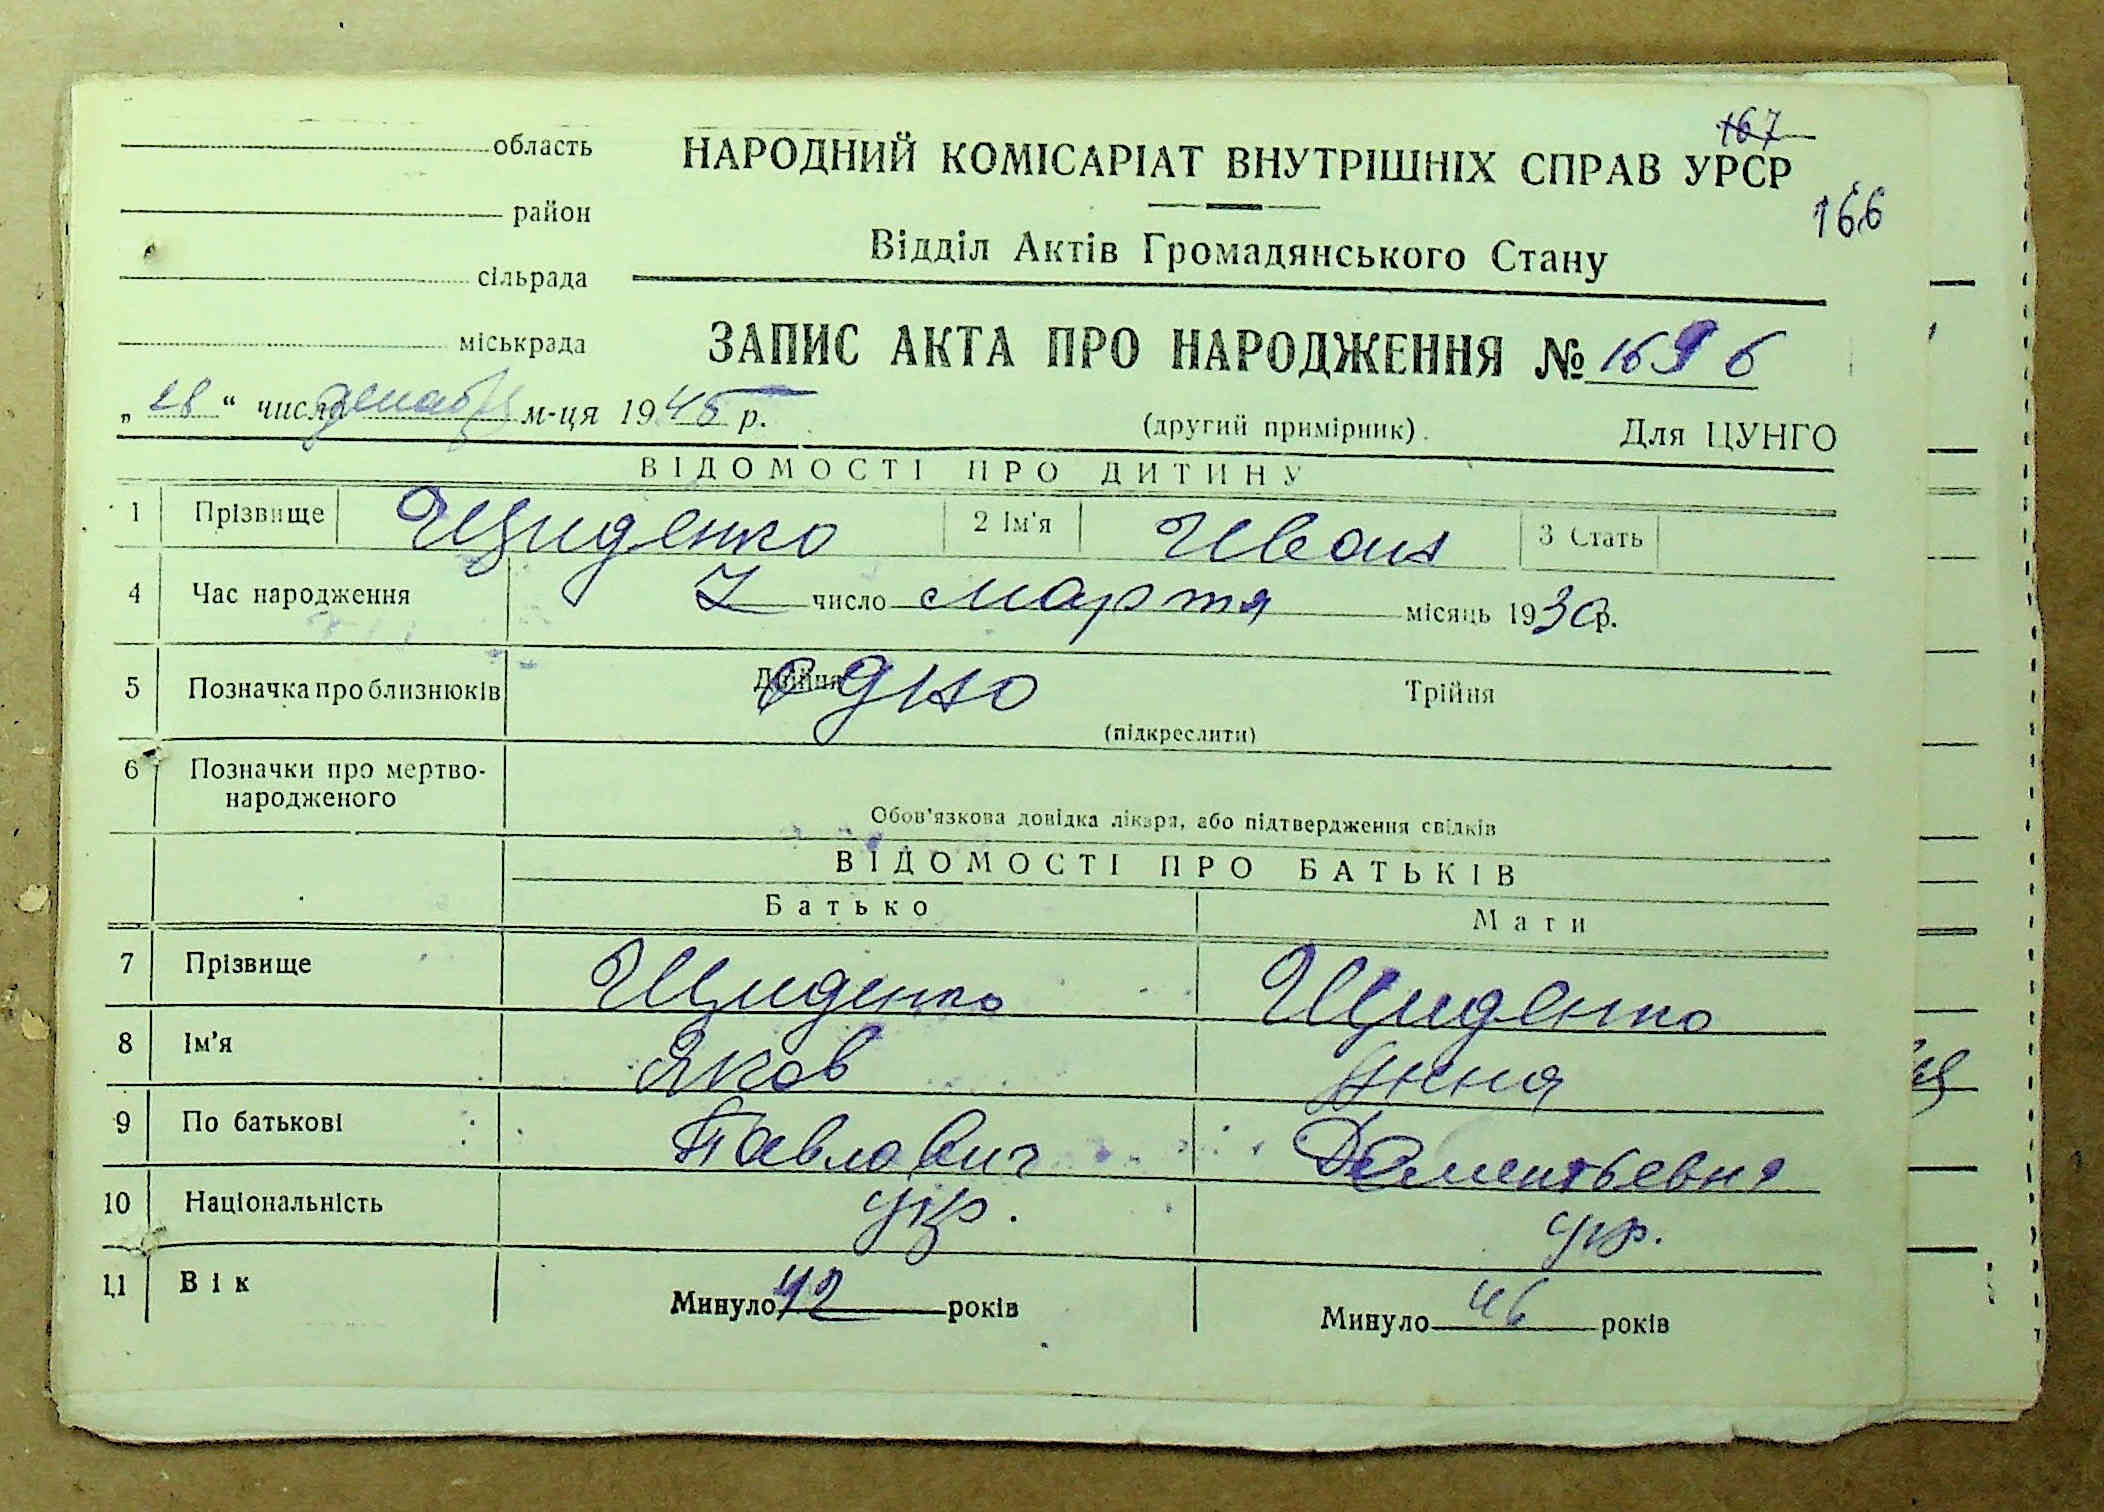 167
область НАРОДНИЙ КОМІСАРІАТ ВНУТРІШНІХ СПРАВ УРСР
район 166
Відділ Актів Громадянського Стану
сільрада
міськрада ЗАПИС АКТА ПРО НАРОДЖЕННЯ № 1696
„28“ числа декабря м-ця 1945 р. (другий примірник). Для ЦУНГО
ВІДОМОСТІ ПРО ДИТИНУ
1 Прізвище Щиденко 2 Ім'я Иван 3 Стать
4 Час народження 7 число марта місяць 1930 р.
5 Позначка про близнюків Двійня одно Трійня
(підкреслити)
6 Позначки про мертво-
народженого
Обов'язкова довідка лікаря, або підтвердження свідків
ВІДОМОСТІ ПРО БАТЬКІВ
Батько Мати
7 Прізвище Щиденко Щиденко
8 Ім'я Яков Анна
9 По батькові Павлович Дементьевна
10 Національність укр. укр.
11 Вік Минуло 42 років Минуло 46 років